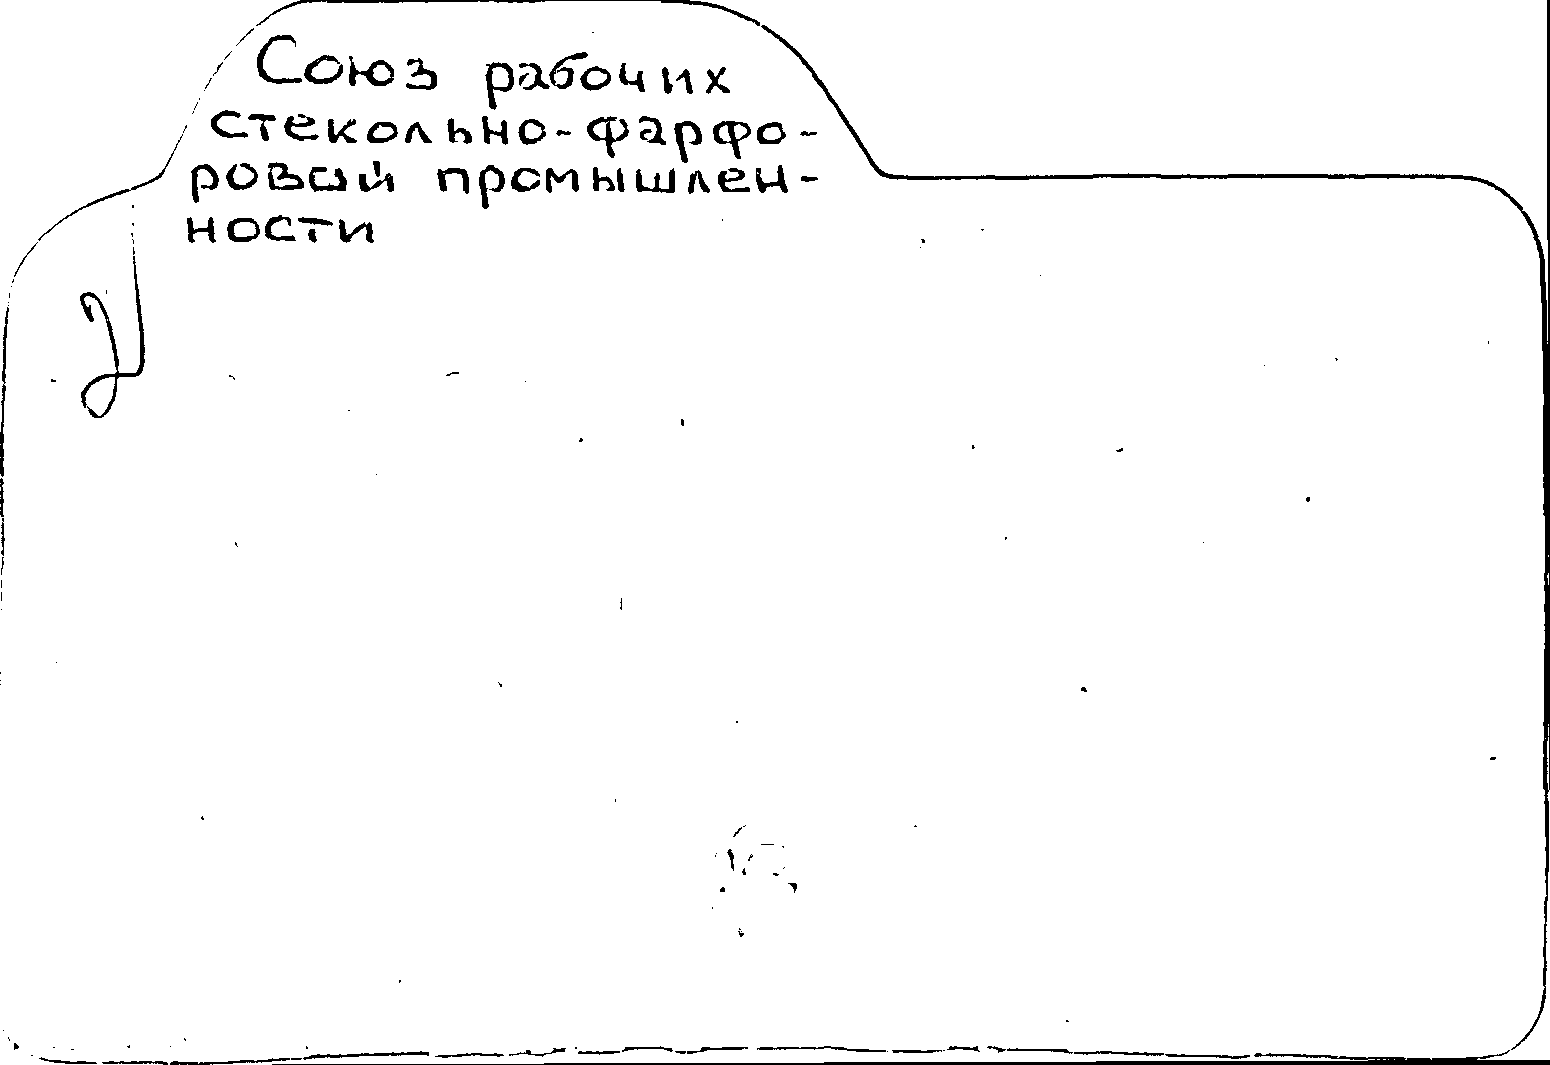 Союз рабочих
стекольно-фарфо-
ровой промышлен-
ности